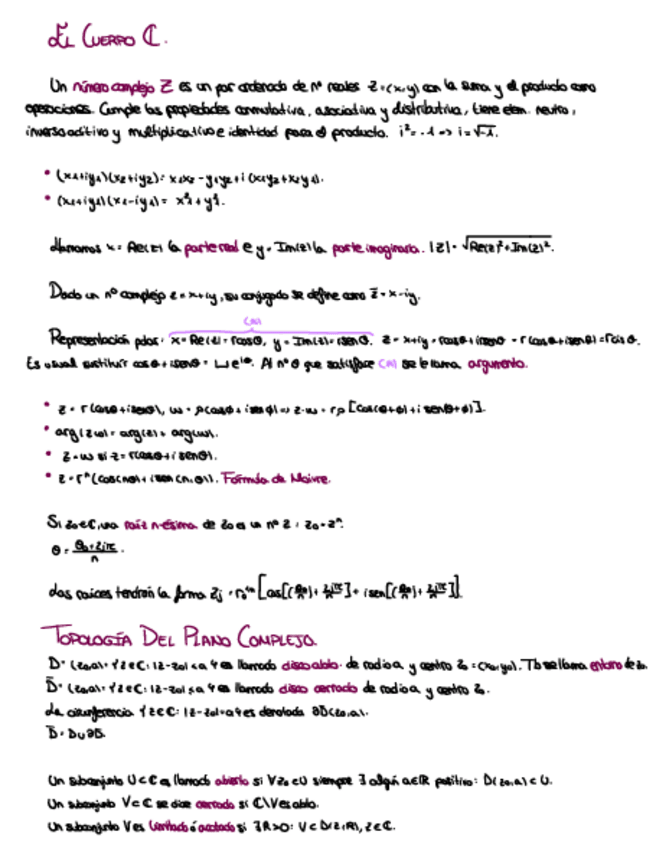 EL CUERPO ℂ.
Un número complejo Z es un par ordenado de nº reales z=(x,y) con la suma y el producto como
operaciones. Cumple las propiedades conmutativa, asociativa y distributiva, tiene elem. neutro,
inverso aditivo y multiplicativo e identidad para el producto. i²=-1 => i=√-1.
• (x₁+iy₁)(x₂+iy₂)= x₁x₂-y₁y₂+i(x₁y₂+x₂y₁).
• (x₁+iy₁)(x₁-iy₁)= x₁²+y₁².
Llamamos x=Re(z) la parte real e y=Im(z) la parte imaginaria. |z|=√Re(z)²+Im(z)².
Dado un nº complejo z=x+iy, su conjugado se define como z̄=x-iy.
Representación polar: x=Re(z)=rcosθ, y=Im(z)=rsenθ. z=x+iy=rcosθ+irsenθ=r(cosθ+isenθ)=rcisθ.
Es usual sustituir cosθ+isenθ = e^iθ. Al nº θ que satisface se le llama argumento.
• z=r(cosθ+isenθ), w=ρ(cosϕ+isenϕ)=> z·w=rρ[cos(θ+ϕ)+isen(θ+ϕ)].
• arg(zw)=arg(z)+arg(w).
• z=w si z=r(cosθ+isenθ).
• z=rⁿ(cos(nθ)+isen(nθ)). Fórmula de Moivre.
Si z₀∈ℂ, una raíz n-ésima de z₀ es un nº z: z₀=zⁿ.
θ=θ₀+2jπ/n.
Las raíces tendrán la forma zj=r₀^1/n[cos[(θ₀/n)+2jπ/n]+isen[(θ₀/n)+2jπ/n]].
TOPOLOGÍA DEL PLANO COMPLEJO.
D=(z₀,a)={z∈ℂ:|z-z₀|<a} es llamado disco abto. de radio a y centro z₀=(x₀,y₀). Tb se llama entorno de z₀.
D̄=(z₀,a)={z∈ℂ:|z-z₀|≤a} es llamado disco cerrado de radio a y centro z₀.
La circunferencia {z∈ℂ:|z-z₀|=a} es denotada ∂D(z₀,a).
D̄=D∪∂D.
Un subconjunto U⊂ℂ es llamado abierto si ∀z₀∈U siempre ∃ algún a∈ℝ positivo: D(z₀,a)⊂U.
Un subconjunto V⊂ℂ se dice cerrado si ℂ\V es abto.
Un subconjunto V es limitado ó acotado si ∃R>0: V⊂D(z,R), z∈ℂ.